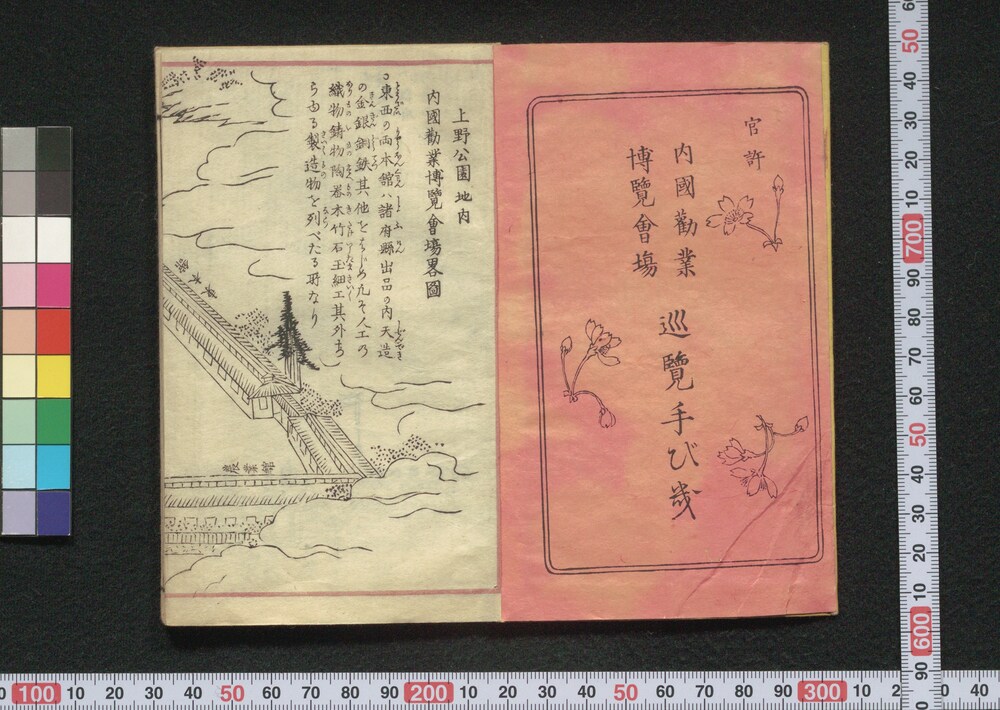 官許
内國勸業
博覽會塲
巡覽手び幾
上野公園地内
内國勸業博覽會塲畧圖
東西の両本館ハ諸府縣出品の内天造
の金銀銅鉄其他をはじめ凡そ人工の
織物鋳物陶器木竹石玉細工其外あ
らゆる製造物を列べたる所なり
東本館
農業館